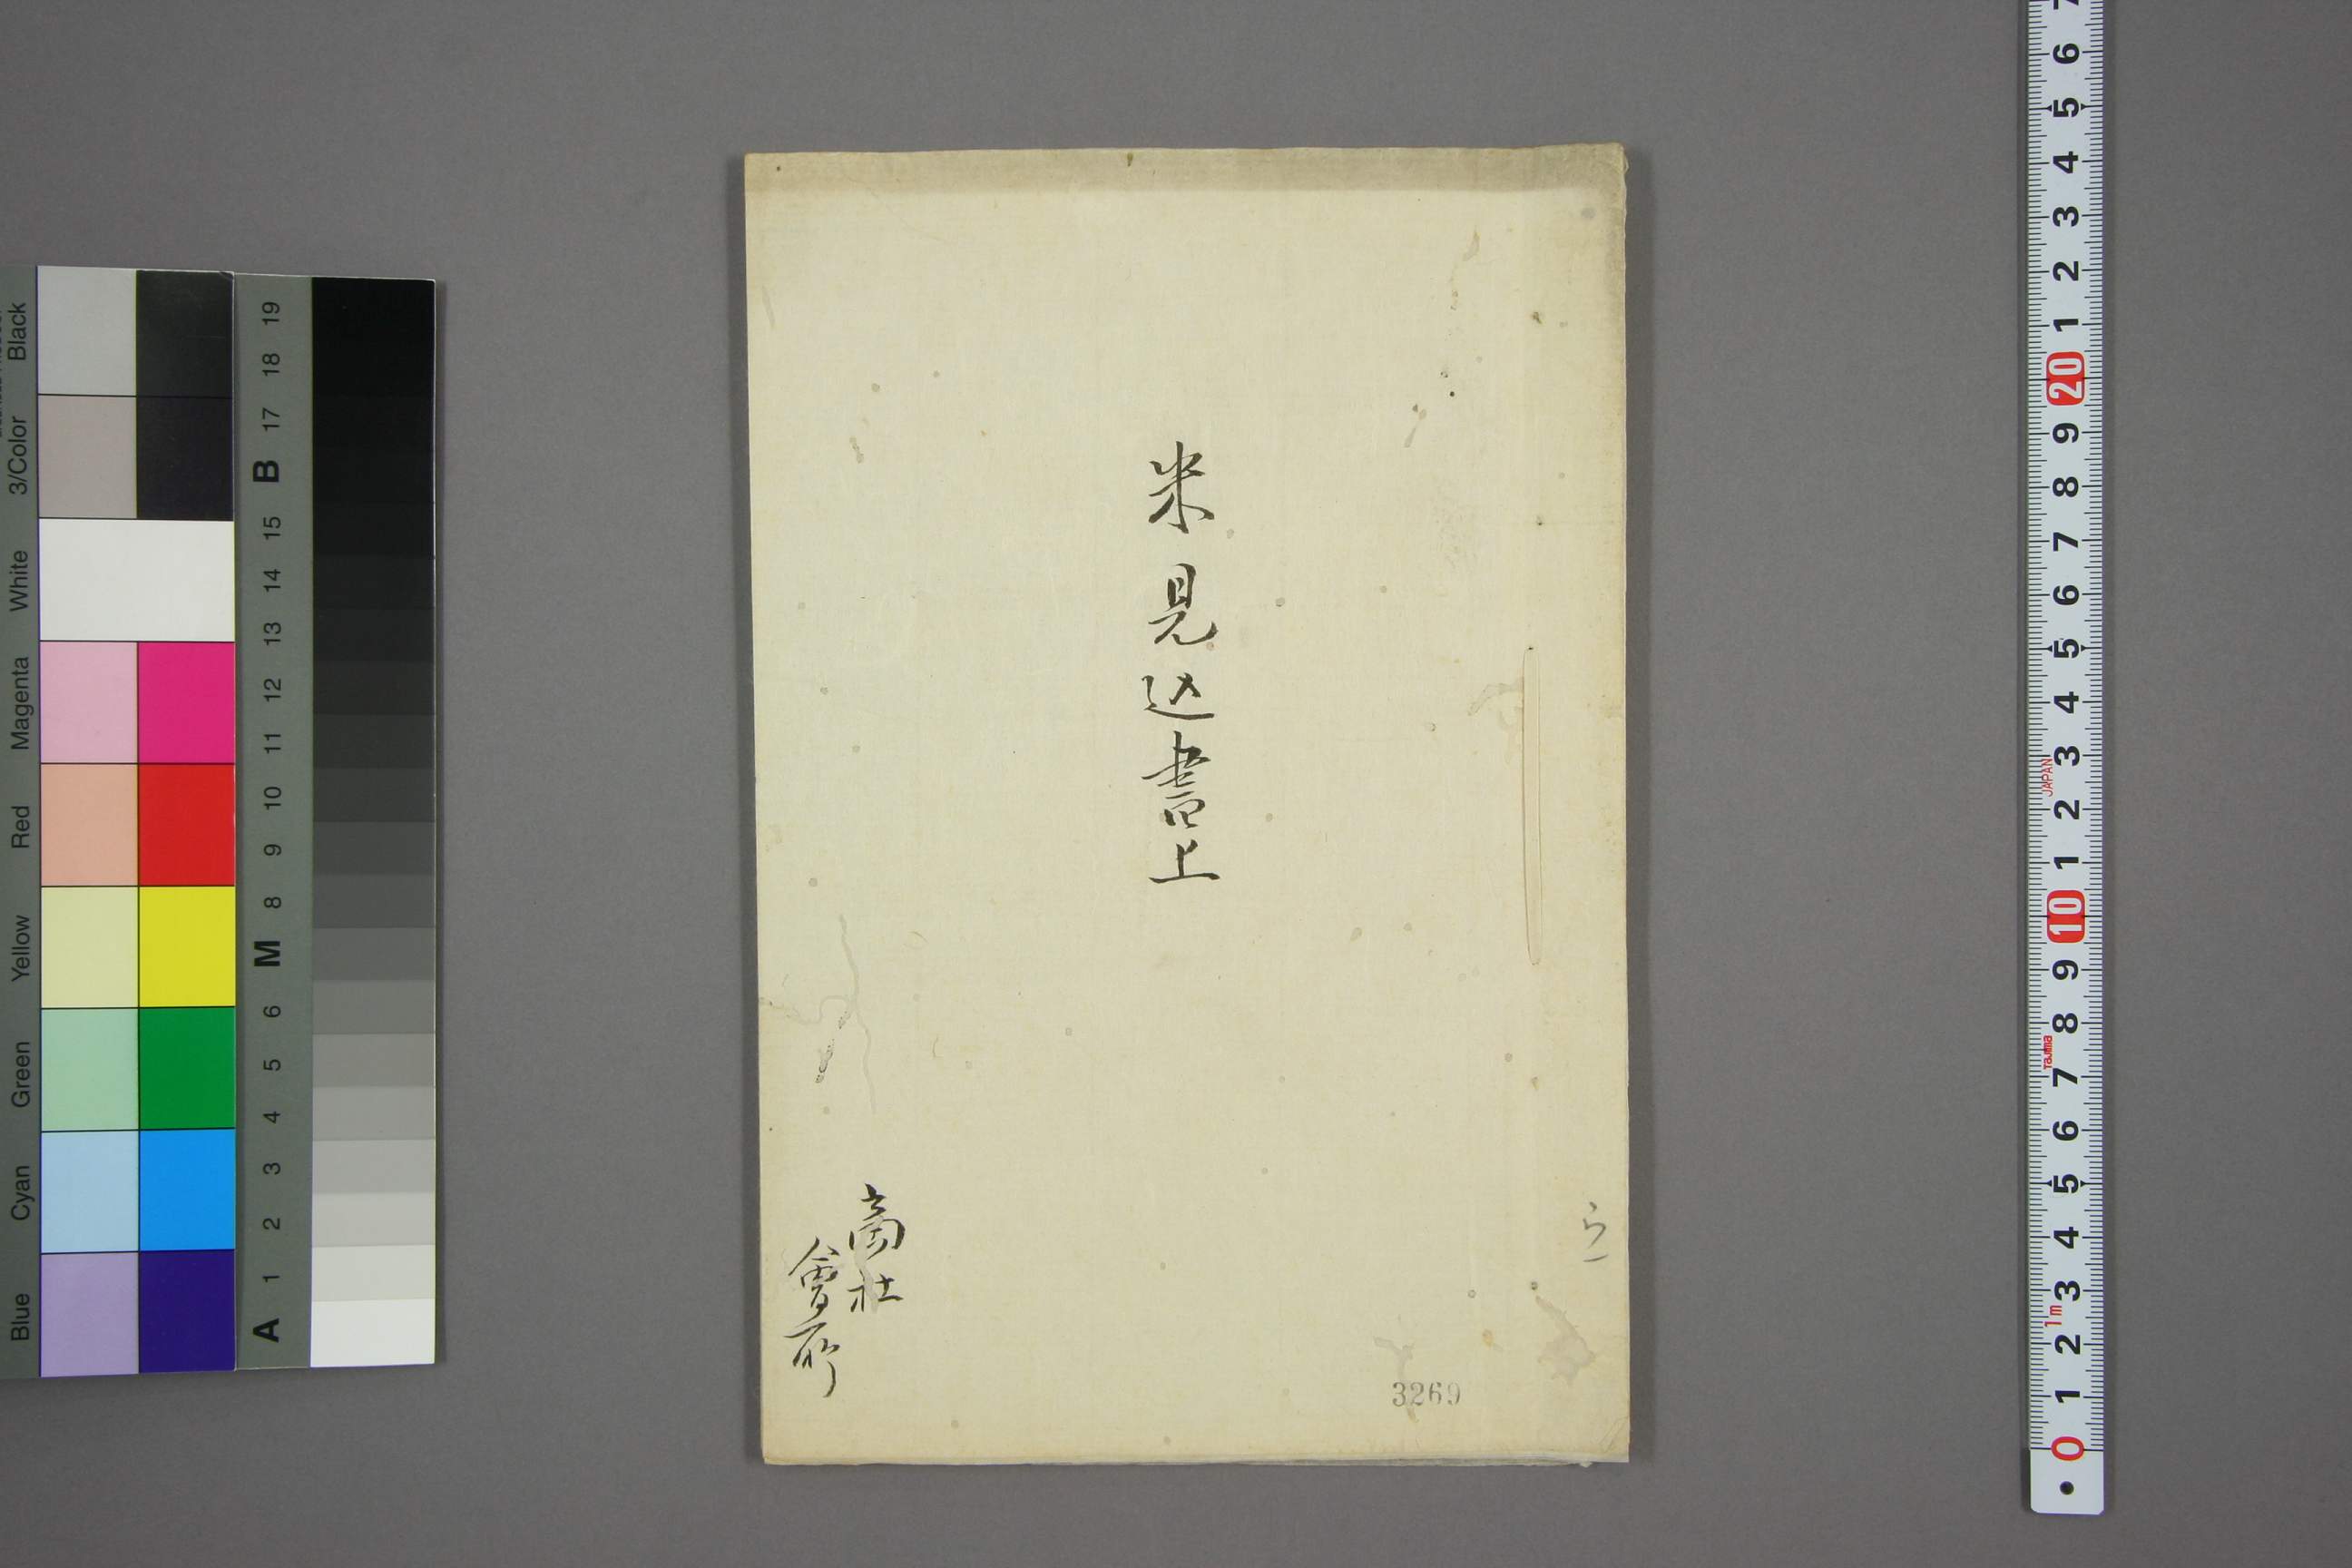 米見込書上
商社
會所
ウ一
3269
Blue Cyan Green Yellow Red Magenta White 3/Color Black
A 1 2 3 4 5 6 M 8 9 10 11 12 13 14 15 B 17 18 19
7
6
5
4
3
2
1
20
9
8
7
6
5
4
3
JAPAN
2
1
10
9
8
Tajima
7
6
5
4
3
1m
2
1
0